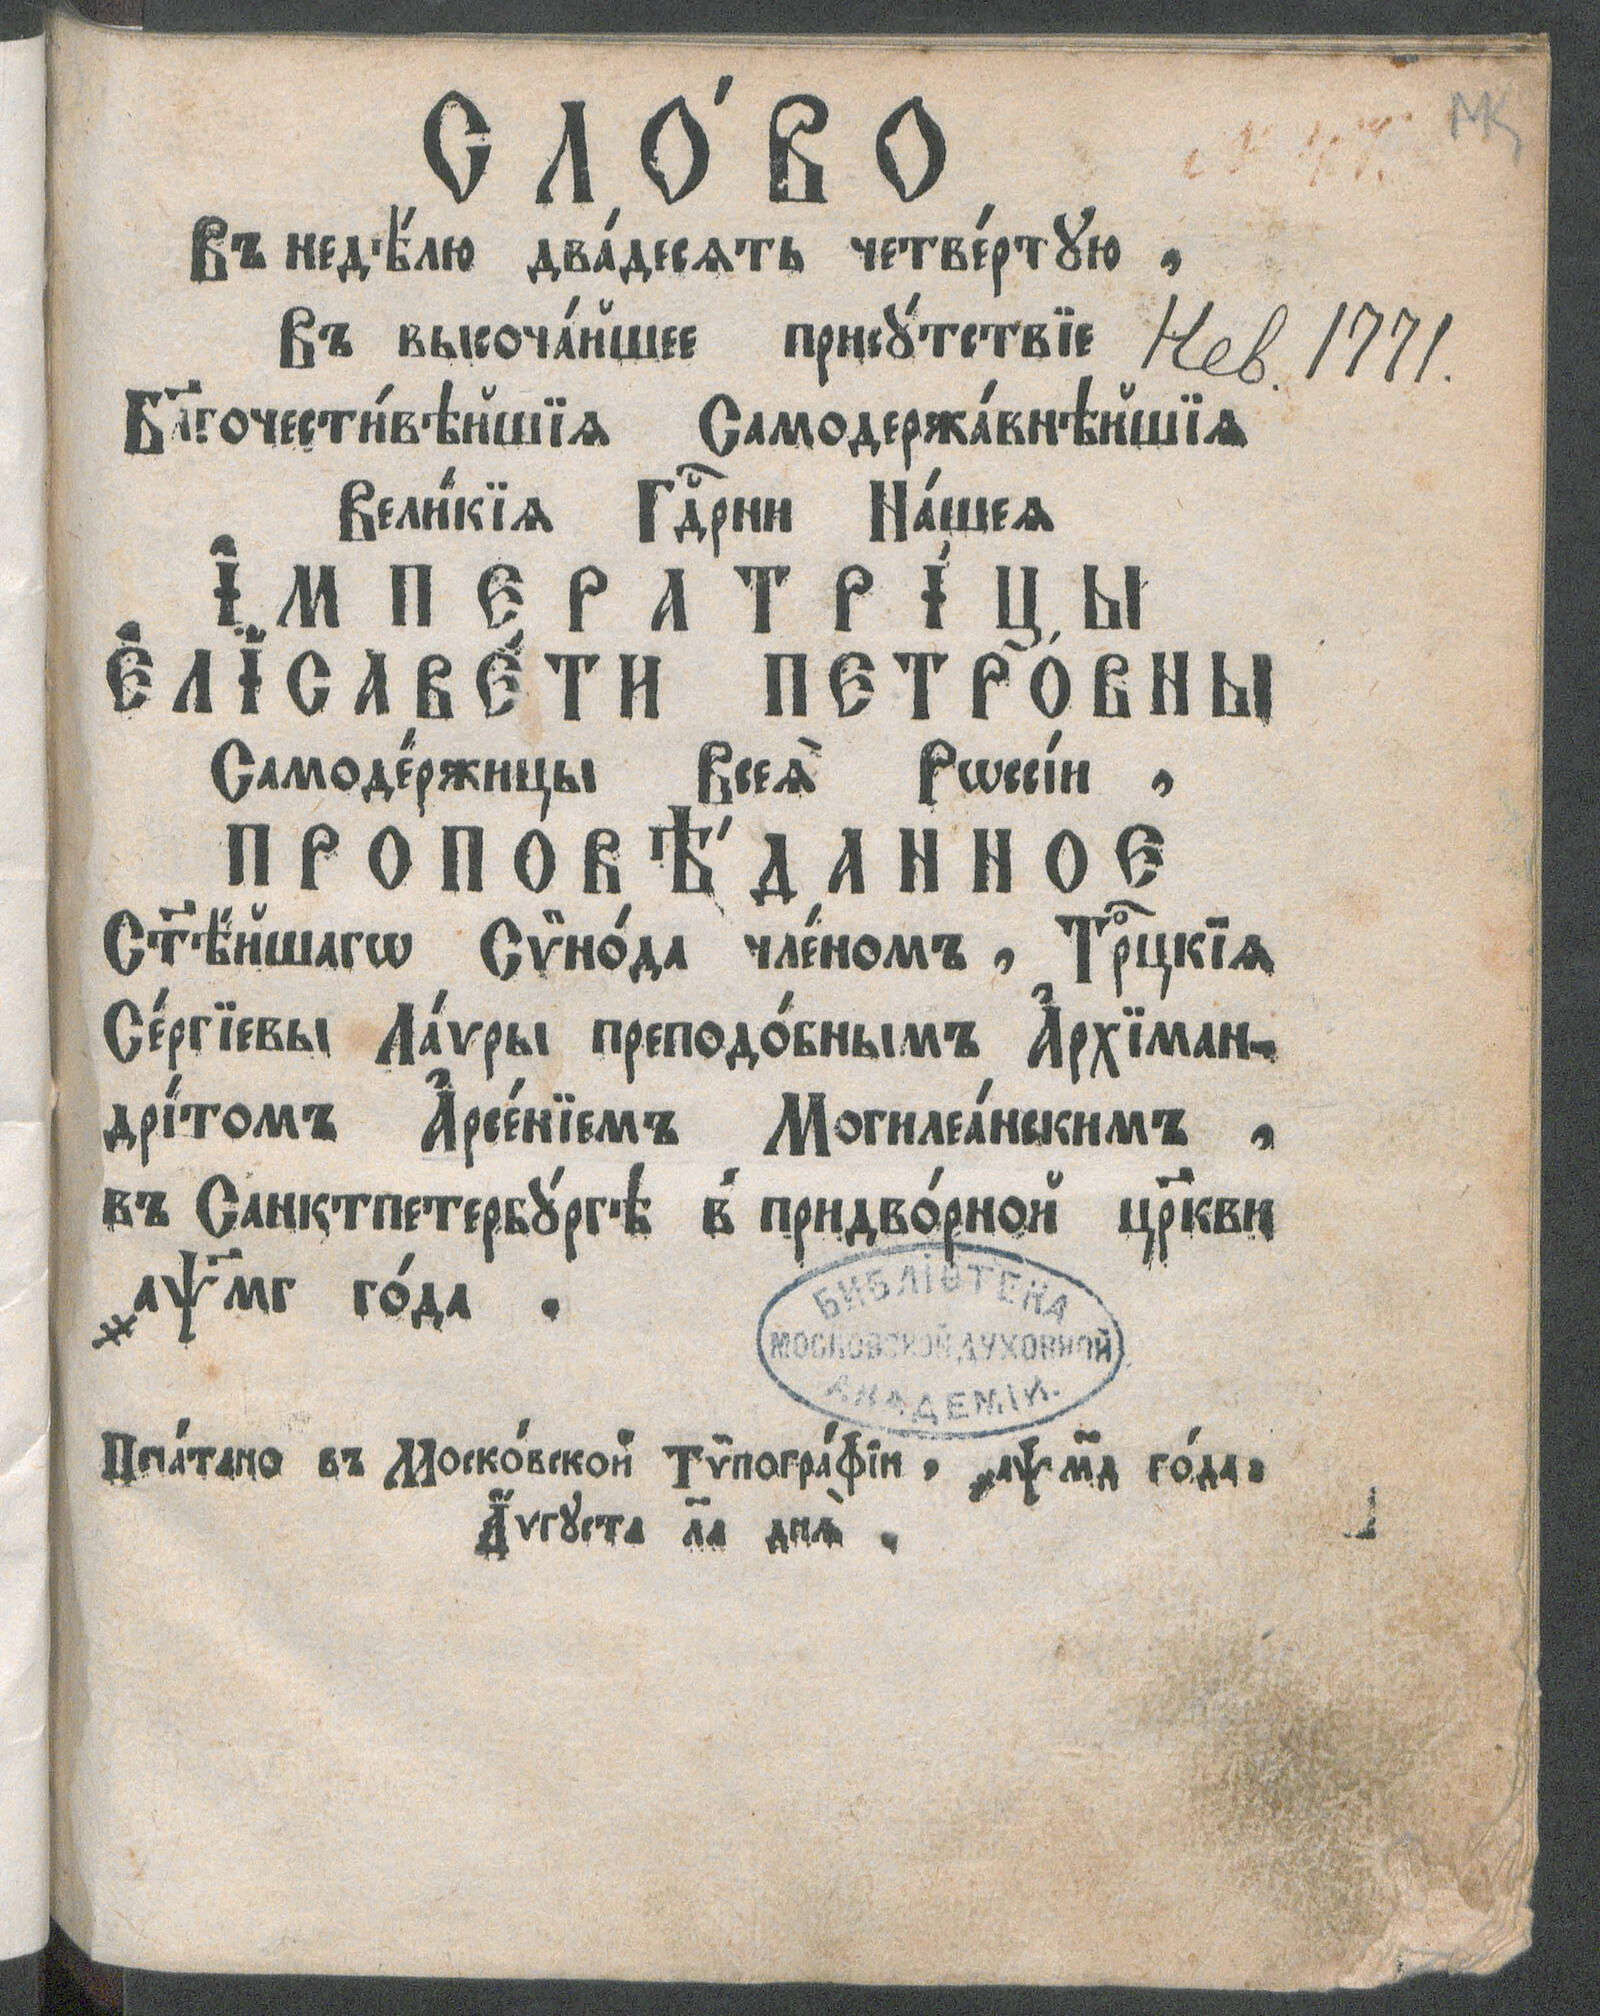 СЛО́ВО
Въ недѣ́лю два́десѧть четве́ртꙋю,
Въ высоча́йшее присꙋ́тствїе
Нев. 1771.
Бл҃гочести́вѣйшїѧ Самодержа́внѣйшїѧ
Вели́кїѧ Гдⷭ҇рни На́шеѧ
І҆МПЕРАТРІ́ЦЫ
Е҆ЛІСАВЕ́ТИ ПЕТРО́ВНЫ
Самоде́ржицы Всеѧ̀ Рѡссі́и,
ПРОПОВѢ́ДАННОЕ
Ст҃ѣ́йшагѡ Сѷно́да чле́номъ, Трⷪ҇цкїѧ
Се́ргїевы Ла́ѵры преподо́бнымъ А҆рхїман-
дрі́томъ А҆рсе́нїемъ Могилеа́нскимъ,
въ Санктпетербꙋ́ргѣ в̾ придво́рной цр҃кви
҂аѱ҃мг го́да.
БИБЛІОТЕКА
МОСКОВСКОЙ ДУХОВНОЙ
АКАДЕМІИ.
Печа́тано въ Моско́вской Тѷпогра́фїи, ҂аѱм҃д го́да.
А҆́ѵгꙋста л҃а днѧ̀.